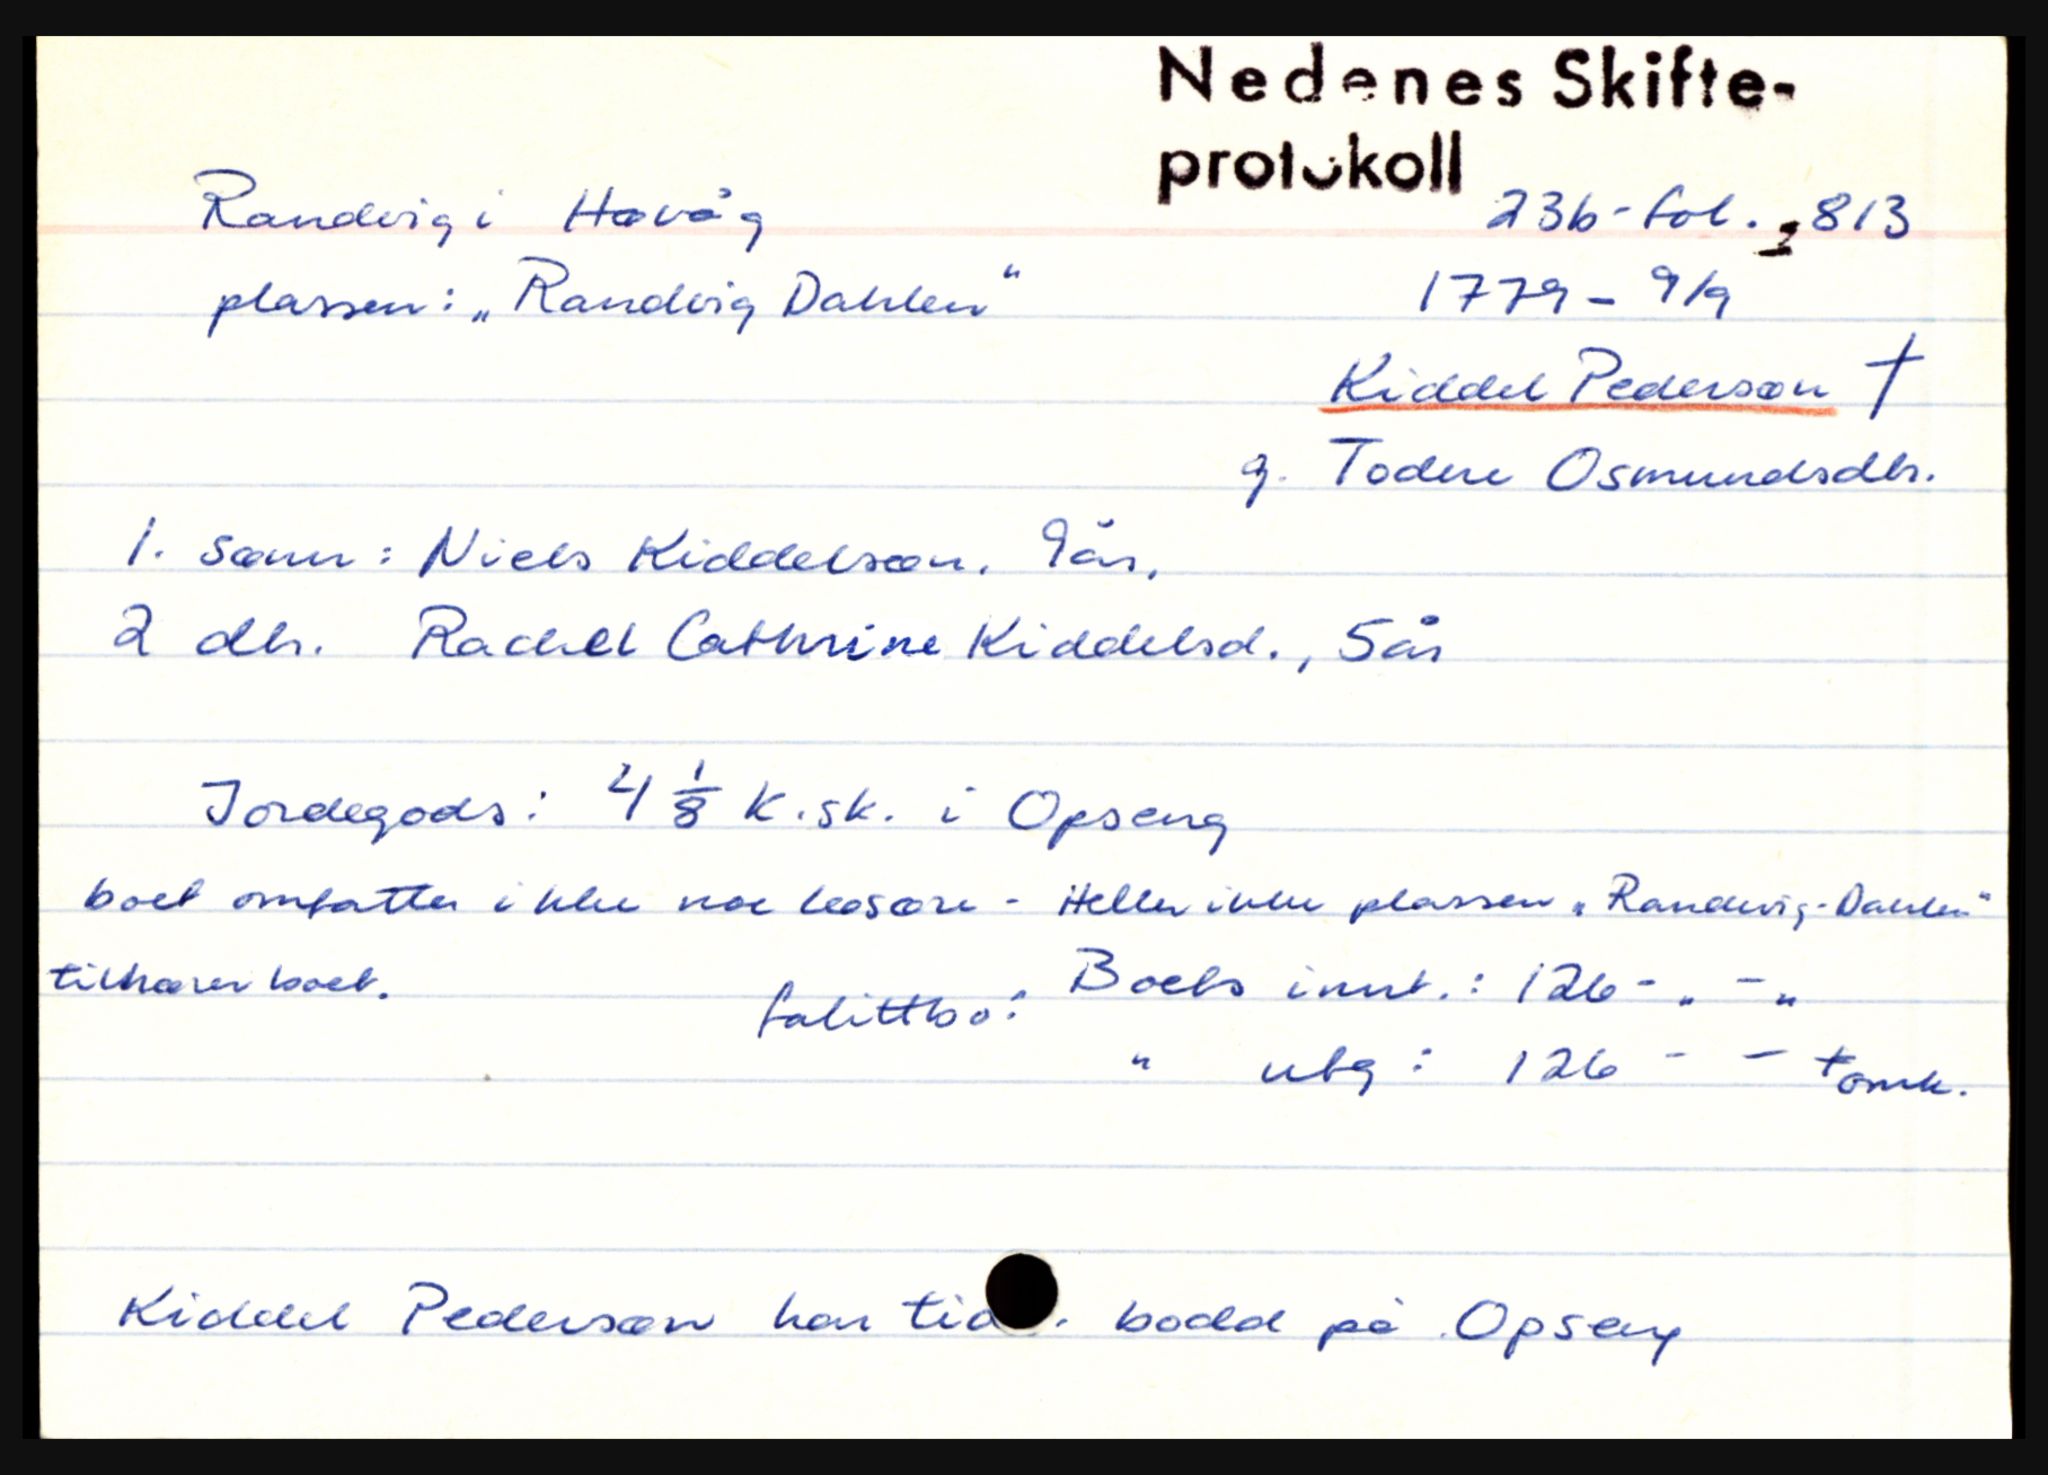 Nedenes Skifte-
protokoll
Randvig i Høvåg 23b - fol. 813
plassen: „Randvig Dahlen" 1779 - 9/9
Kiddel Pedersøn †
g. Todere Osmundsdtr.
1. sønn: Niels Kiddelsøn. 9 år.
2 dtr. Rachel Cathrine Kiddelsd., 5 år
Jordegods: 4 1/8 k.sk. i Opseng
boet omfatter ikke noe løsøre - Heller ikke plassen „Randvig-Dahlen"
tilhører boet.
falittbo: Boets innt.: 126 - „ - „
" utg: 126 - - + omk.
Kiddel Pedersøn har tid. bodd på Opseng